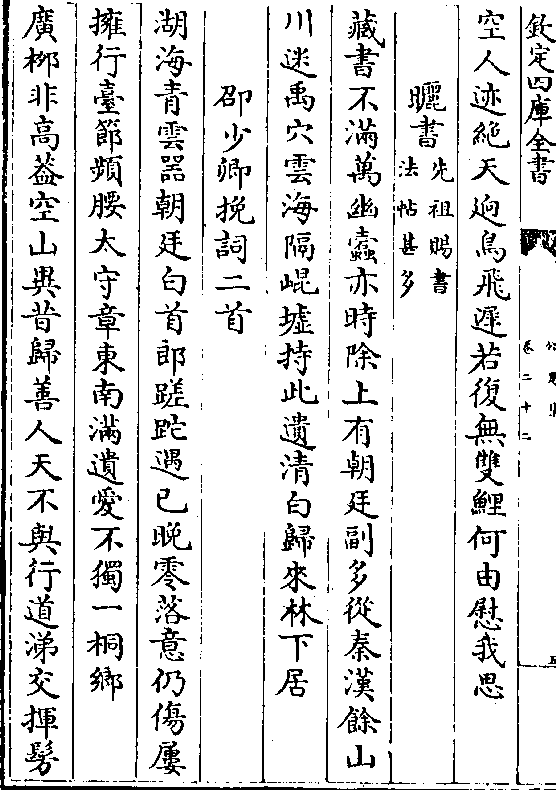 欽定四庫全書
卷二十二
空人迹絶天迥鳥飛遲若復無雙鯉何由慰我思
曬書先祖賜書法帖甚多
藏書不滿萬幽蠧亦時除上有朝廷副多從秦漢餘山
川迷禹穴雲海隔崐墟持此遺清白歸來林下居
邵少卿挽詞二首
湖海青雲器朝廷白首郎蹉跎遇已晚零落意仍傷屢
擁行臺節頻腰太守章東南滿遺愛不獨一桐鄉
廣栁非高葢空山與昔歸善人天不與行道涕交揮髣